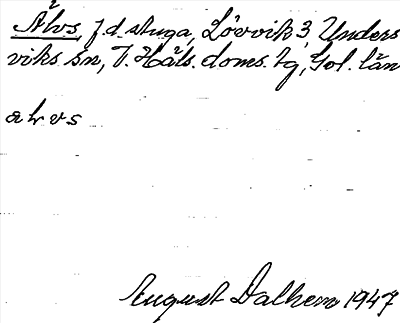 Älvs, f.d. stuga, Lövvik 3, Unders
viks sn, V. Häls. doms. tg, Gol. län
a l v s
August Dalhem 1947